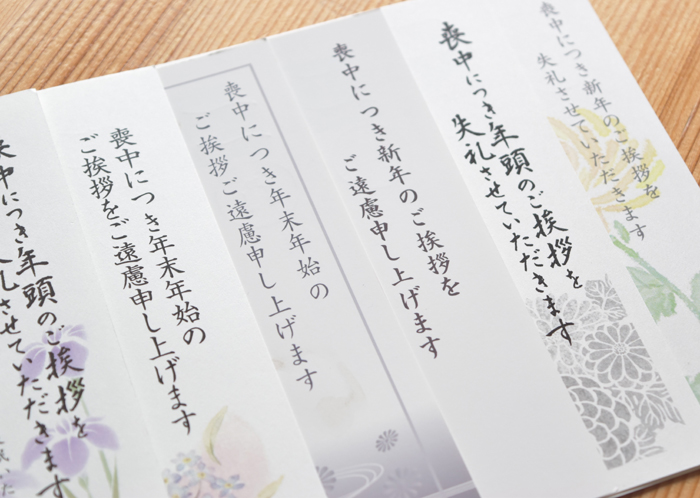 喪中につき新年のご挨拶を
失礼させていただきます
喪中につき年頭のご挨拶を
失礼させていただきます
喪中につき新年のご挨拶を
ご遠慮申し上げます
喪中につき年末年始の
ご挨拶ご遠慮申し上げます
喪中につき年末年始の
ご挨拶をご遠慮申し上げます
喪中につき年頭のご挨拶を
礼させていただきます